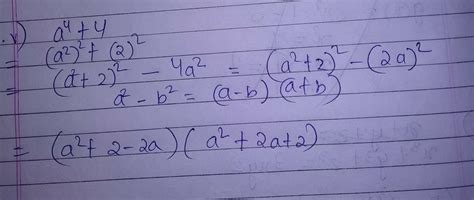 v) a⁴ + 4
= (a²)² + (2)²
= (a² + 2)² - 4a² = (a² + 2)² - (2a)²
a² - b² = (a-b) (a+b)
= (a² + 2 - 2a) (a² + 2a + 2)